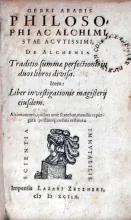 GEBRI ARABIS
PHILOSO,
PHI AC ALCHIMI
STAE ACVTISSIMI,
DE ALCHEMIA
Traditio summæ perfectionis in
duos libros divisa.
Item:
Liber investigationis magisterij
eiusdem.
SCIENTIA
IMMUTABILIS
Impensis LAZARI ZETZNERI,